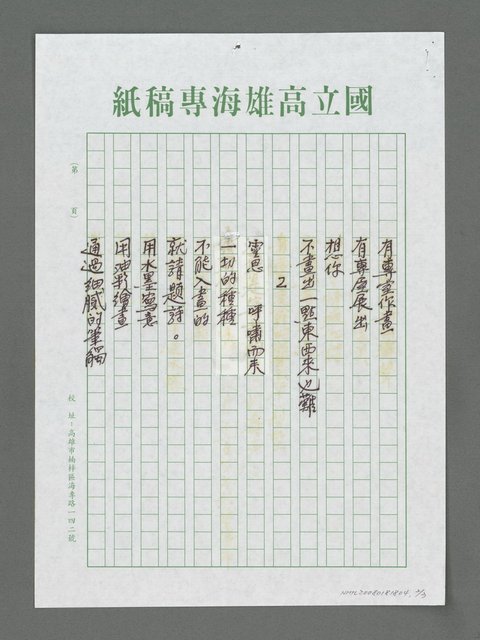 國立高雄海專稿紙
有專家作畫
有專虛展出
想你
不畫出一點東西來也難
2
靈思 呼嘯而來
一切的種種
不能入畫的
就請題詩。
用水墨寫意
用油彩繪畫
通過細膩的筆觸
(第 頁)
校址：高雄市楠梓區海專路一四二號